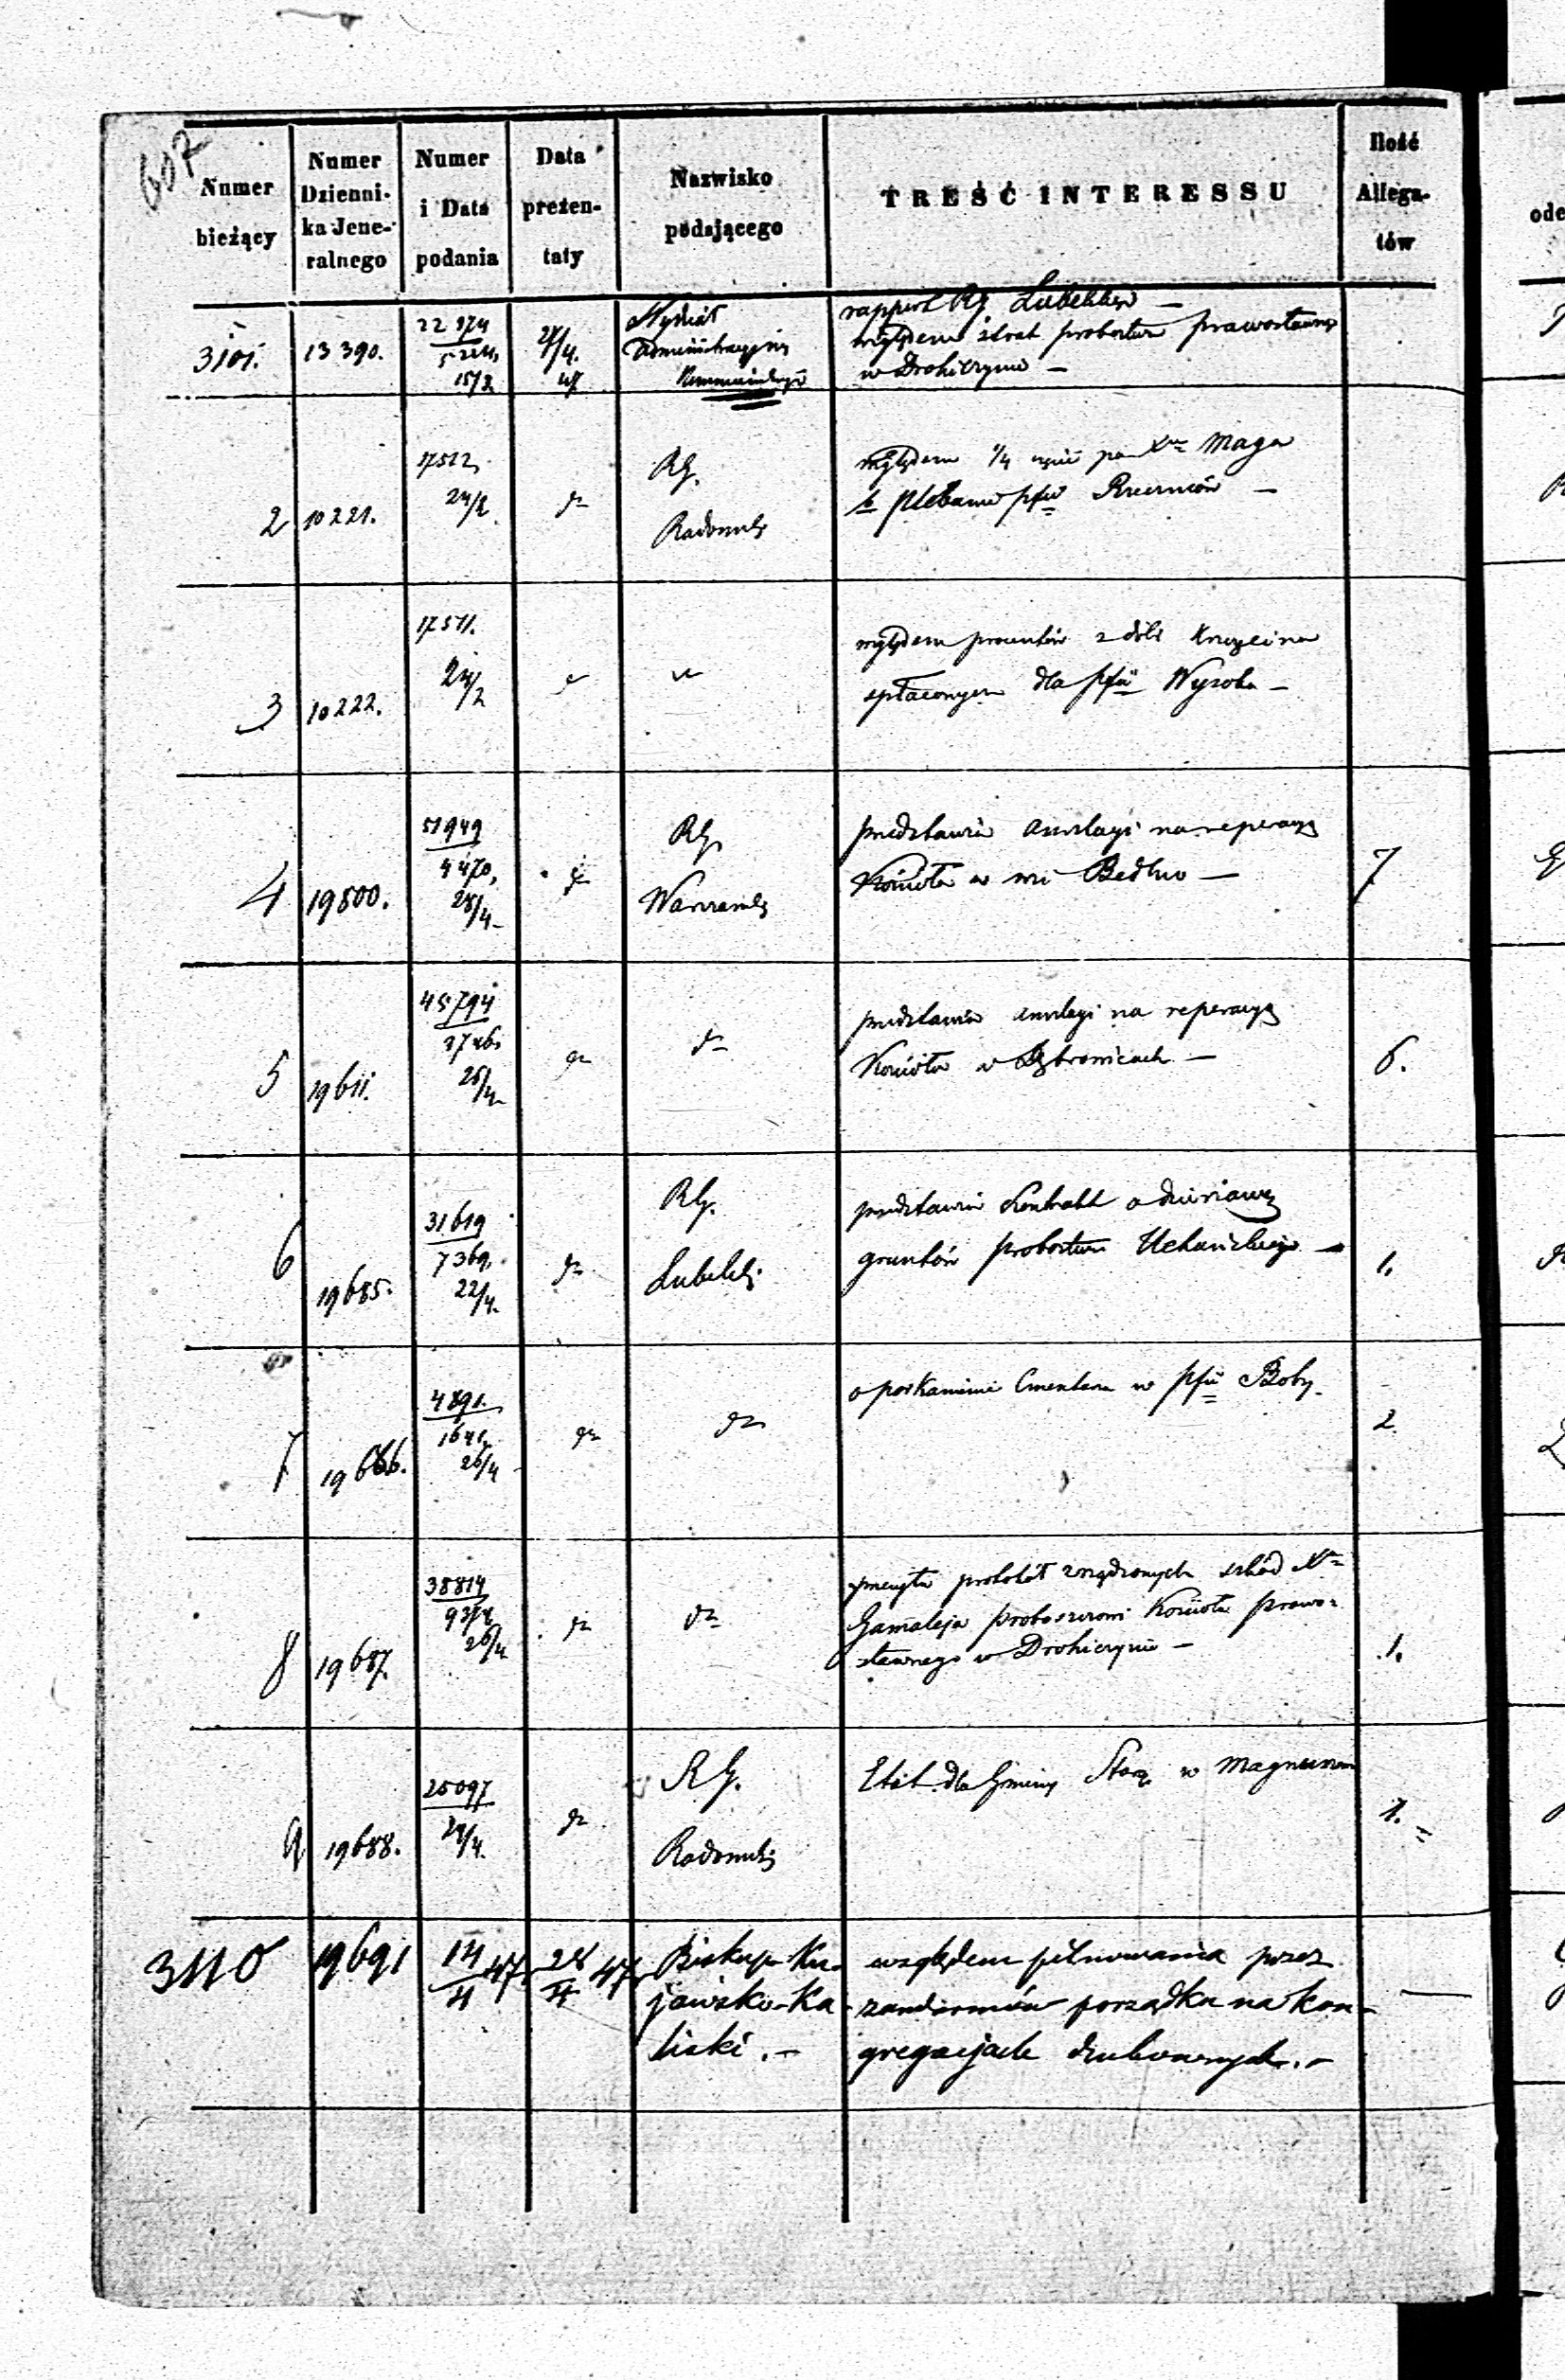 607
Numer bieżący
Numer Dzienni- ka Jene- ralnego
Numer i Data podania
Data prezen- taty
Nazwisko podającego
TREŚĆ INTERESSU
Ilość Allega- tów
3101. 13390. 22974 15/2 27/4. 47 Wydział Administracyjny
rapport RG. Lubelskiego —
względem strat probostwa prawosławnego
w Drohiczynie —
2 10221. 17522, 24/2. dto RG. Radomski
względem 1/4 części po Xdzu Maga
b. Plebanie pfii —
3 10222. 17511. 24/2
względem procentów z dóbr
spłaconych dla pfii Wysoka —
4 19500. 51949 4470, 28/4. RG. Warszawski 7
przedstawia anszlagi na reperacyą
Kościoła w wsi Bedlno —
5 19611. 45794 26/4. dto dto 6.
przedstawia anszlagi na reperacyą
Kościoła w Dąbrowicach —
6 19685. 31619 7369. 22/4. dto RG. Lubelski 1.
przedstawia Kontrakt o dzierżawę
gruntów probostwa Uchańskiego —
7 19686. 4891. 1641, 26/4 dto dto 2.
o parkanienie Cmentarza w pfii Boby.
8 19687. 38814 26/4 dto dto 1.
protokół zrządzonych szkód Xdzu
Gamaleja proboszczowi Kościoła prawo=
sławnego w Drohiczynie —
9 19688. 25097 24/4. dto RG. Radomski 1.
Etat dla Gminy Star. w Magnuszew
3110 19691 14/4 47. 28/4 47. Biskup Ku-
jawsko-Ka-
liski. —
względem pilnowania przez
żandarmów porządku na kon-
gregacjach duchownych. —